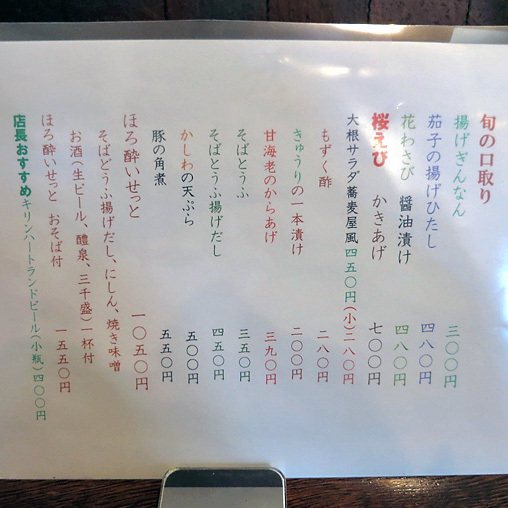 旬の口取り
揚げぎんなん 三〇〇円
茄子の揚げひたし 四八〇円
花わさび 醤油漬け 四八〇円
桜えび かきあげ 七〇〇円
大根サラダ蕎麦屋風 四五〇円(小)二八〇円
もずく酢 二八〇円
きゅうりの一本漬け 二〇〇円
甘海老のからあげ 三九〇円
そばとうふ 三五〇円
そばとうふ揚げだし 四五〇円
かしわの天ぷら 五〇〇円
豚の角煮 五五〇円
ほろ酔いせっと 一〇五〇円
そばどうふ揚げだし、にしん、焼き味噌
お酒(生ビール、醴泉、三千盛)一杯付
ほろ酔いせっと おそば付 一五五〇円
店長おすすめキリンハートランドビール(小瓶)四〇〇円